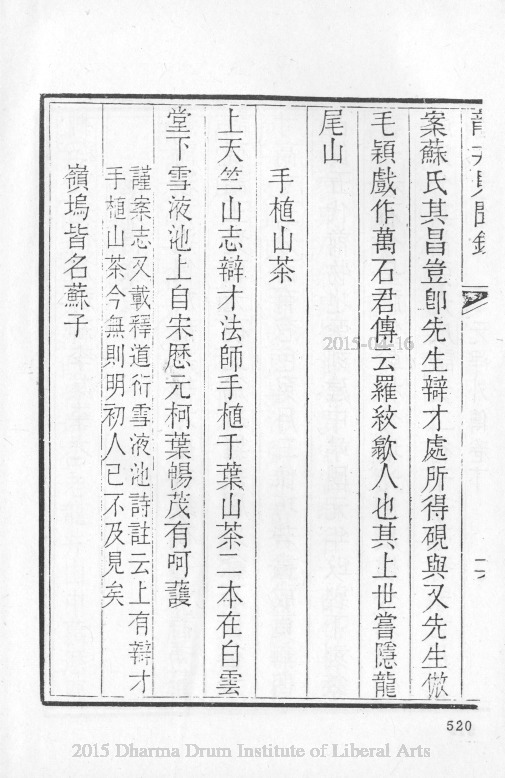 龍井見聞錄
案蘇氏其昌豈卽先生辯才處所得硯與又先生倣
毛穎戲作萬石君傳云羅紋歙人也其上世嘗隱龍
尾山
手植山茶
上天竺山志辯才法師手植千葉山茶二本在白雲
堂下雪液池上自宋歷元柯葉暢茂有呵護
謹案志又載釋道衍雪液池詩註云上有辯才
手植山茶今無則明初人已不及見矣
嶺塢皆名蘇子
2015-04-16
520
2015 Dharma Drum Institute of Liberal Arts